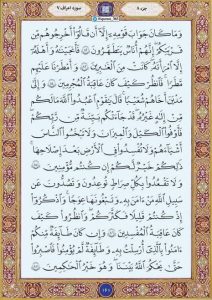 جزء ۸
سوره اعراف ۷
وَمَا كَانَ جَوَابَ قَوْمِهِۦٓ إِلَّآ أَن قَالُوٓاْ أَخْرِجُوهُم مِّن
قَرْيَتِكُمْ إِنَّهُمْ أُنَاسٌ يَتَطَهَّرُونَ ٨٢ فَأَنجَيْنَٰهُ وَأَهْلَهُۥٓ
إِلَّا ٱمْرَأَتَهُۥ كَانَتْ مِنَ ٱلْغَٰبِرِينَ ٨٣ وَأَمْطَرْنَا عَلَيْهِم
مَّطَرًا فَٱنظُرْ كَيْفَ كَانَ عَٰقِبَةُ ٱلْمُجْرِمِينَ ٨٤ وَإِلَىٰ
مَدْيَنَ أَخَاهُمْ شُعَيْبًا قَالَ يَٰقَوْمِ ٱعْبُدُواْ ٱللَّهَ مَا لَكُم
مِّنْ إِلَٰهٍ غَيْرُهُۥ قَدْ جَآءَتْكُم بَيِّنَةٌ مِّن رَّبِّكُمْ
فَأَوْفُواْ ٱلْكَيْلَ وَٱلْمِيزَانَ وَلَا تَبْخَسُواْ ٱلنَّاسَ
أَشْيَآءَهُمْ وَلَا تُفْسِدُواْ فِى ٱلْأَرْضِ بَعْدَ إِصْلَٰحِهَا
ذَٰلِكُمْ خَيْرٌ لَّكُمْ إِن كُنتُم مُّؤْمِنِينَ ٨٥
وَلَا تَقْعُدُواْ بِكُلِّ صِرَٰطٍ تُوعِدُونَ وَتَصُدُّونَ عَن
سَبِيلِ ٱللَّهِ مَنْ ءَامَنَ بِهِۦ وَتَبْغُونَهَا عِوَجًا وَٱذْكُرُوٓاْ
إِذْ كُنتُمْ قَلِيلًا فَكَثَّرَكُمْ وَٱنظُرُواْ كَيْفَ
كَانَ عَٰقِبَةُ ٱلْمُفْسِدِينَ ٨٦ وَإِن كَانَ طَآئِفَةٌ مِّنكُمْ
ءَامَنُواْ بِٱلَّذِىٓ أُرْسِلْتُ بِهِۦ وَطَآئِفَةٌ لَّمْ يُؤْمِنُواْ فَٱصْبِرُواْ
حَتَّىٰ يَحْكُمَ ٱللَّهُ بَيْنَنَا وَهُوَ خَيْرُ ٱلْحَٰكِمِينَ ٨٧
١٦١